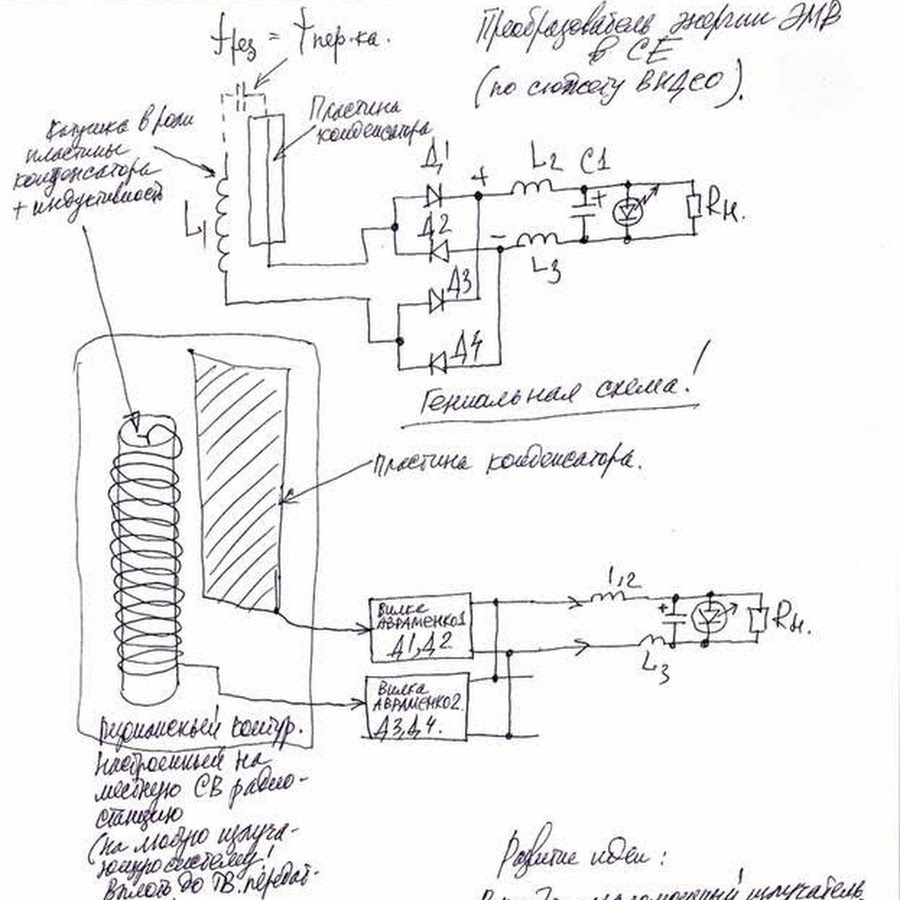 fрез = fпер-ка.
Преобразователь энергии ЭМВ
в СЕ
(по сюжету ВИДЕО).
Катушка в роли
пластины
конденсатора
+ индуктивность
Пластина
конденсатора
L1
Д1
Д2
Д3
Д4
+
-
L2
C1
+
L3
Rн.
Гениальная схема!
Пластина конденсатора.
Вилка
Авраменко1
Д1,Д2
Вилка
Авраменко2.
Д3,Д4.
L2
+
L3
Rн.
контур.
Настроенный на
местную СВ радио-
станцию
(на любую излуча-
ющую систему!
Вплоть до ТВ. передат-
Развитие идеи:
излучатель